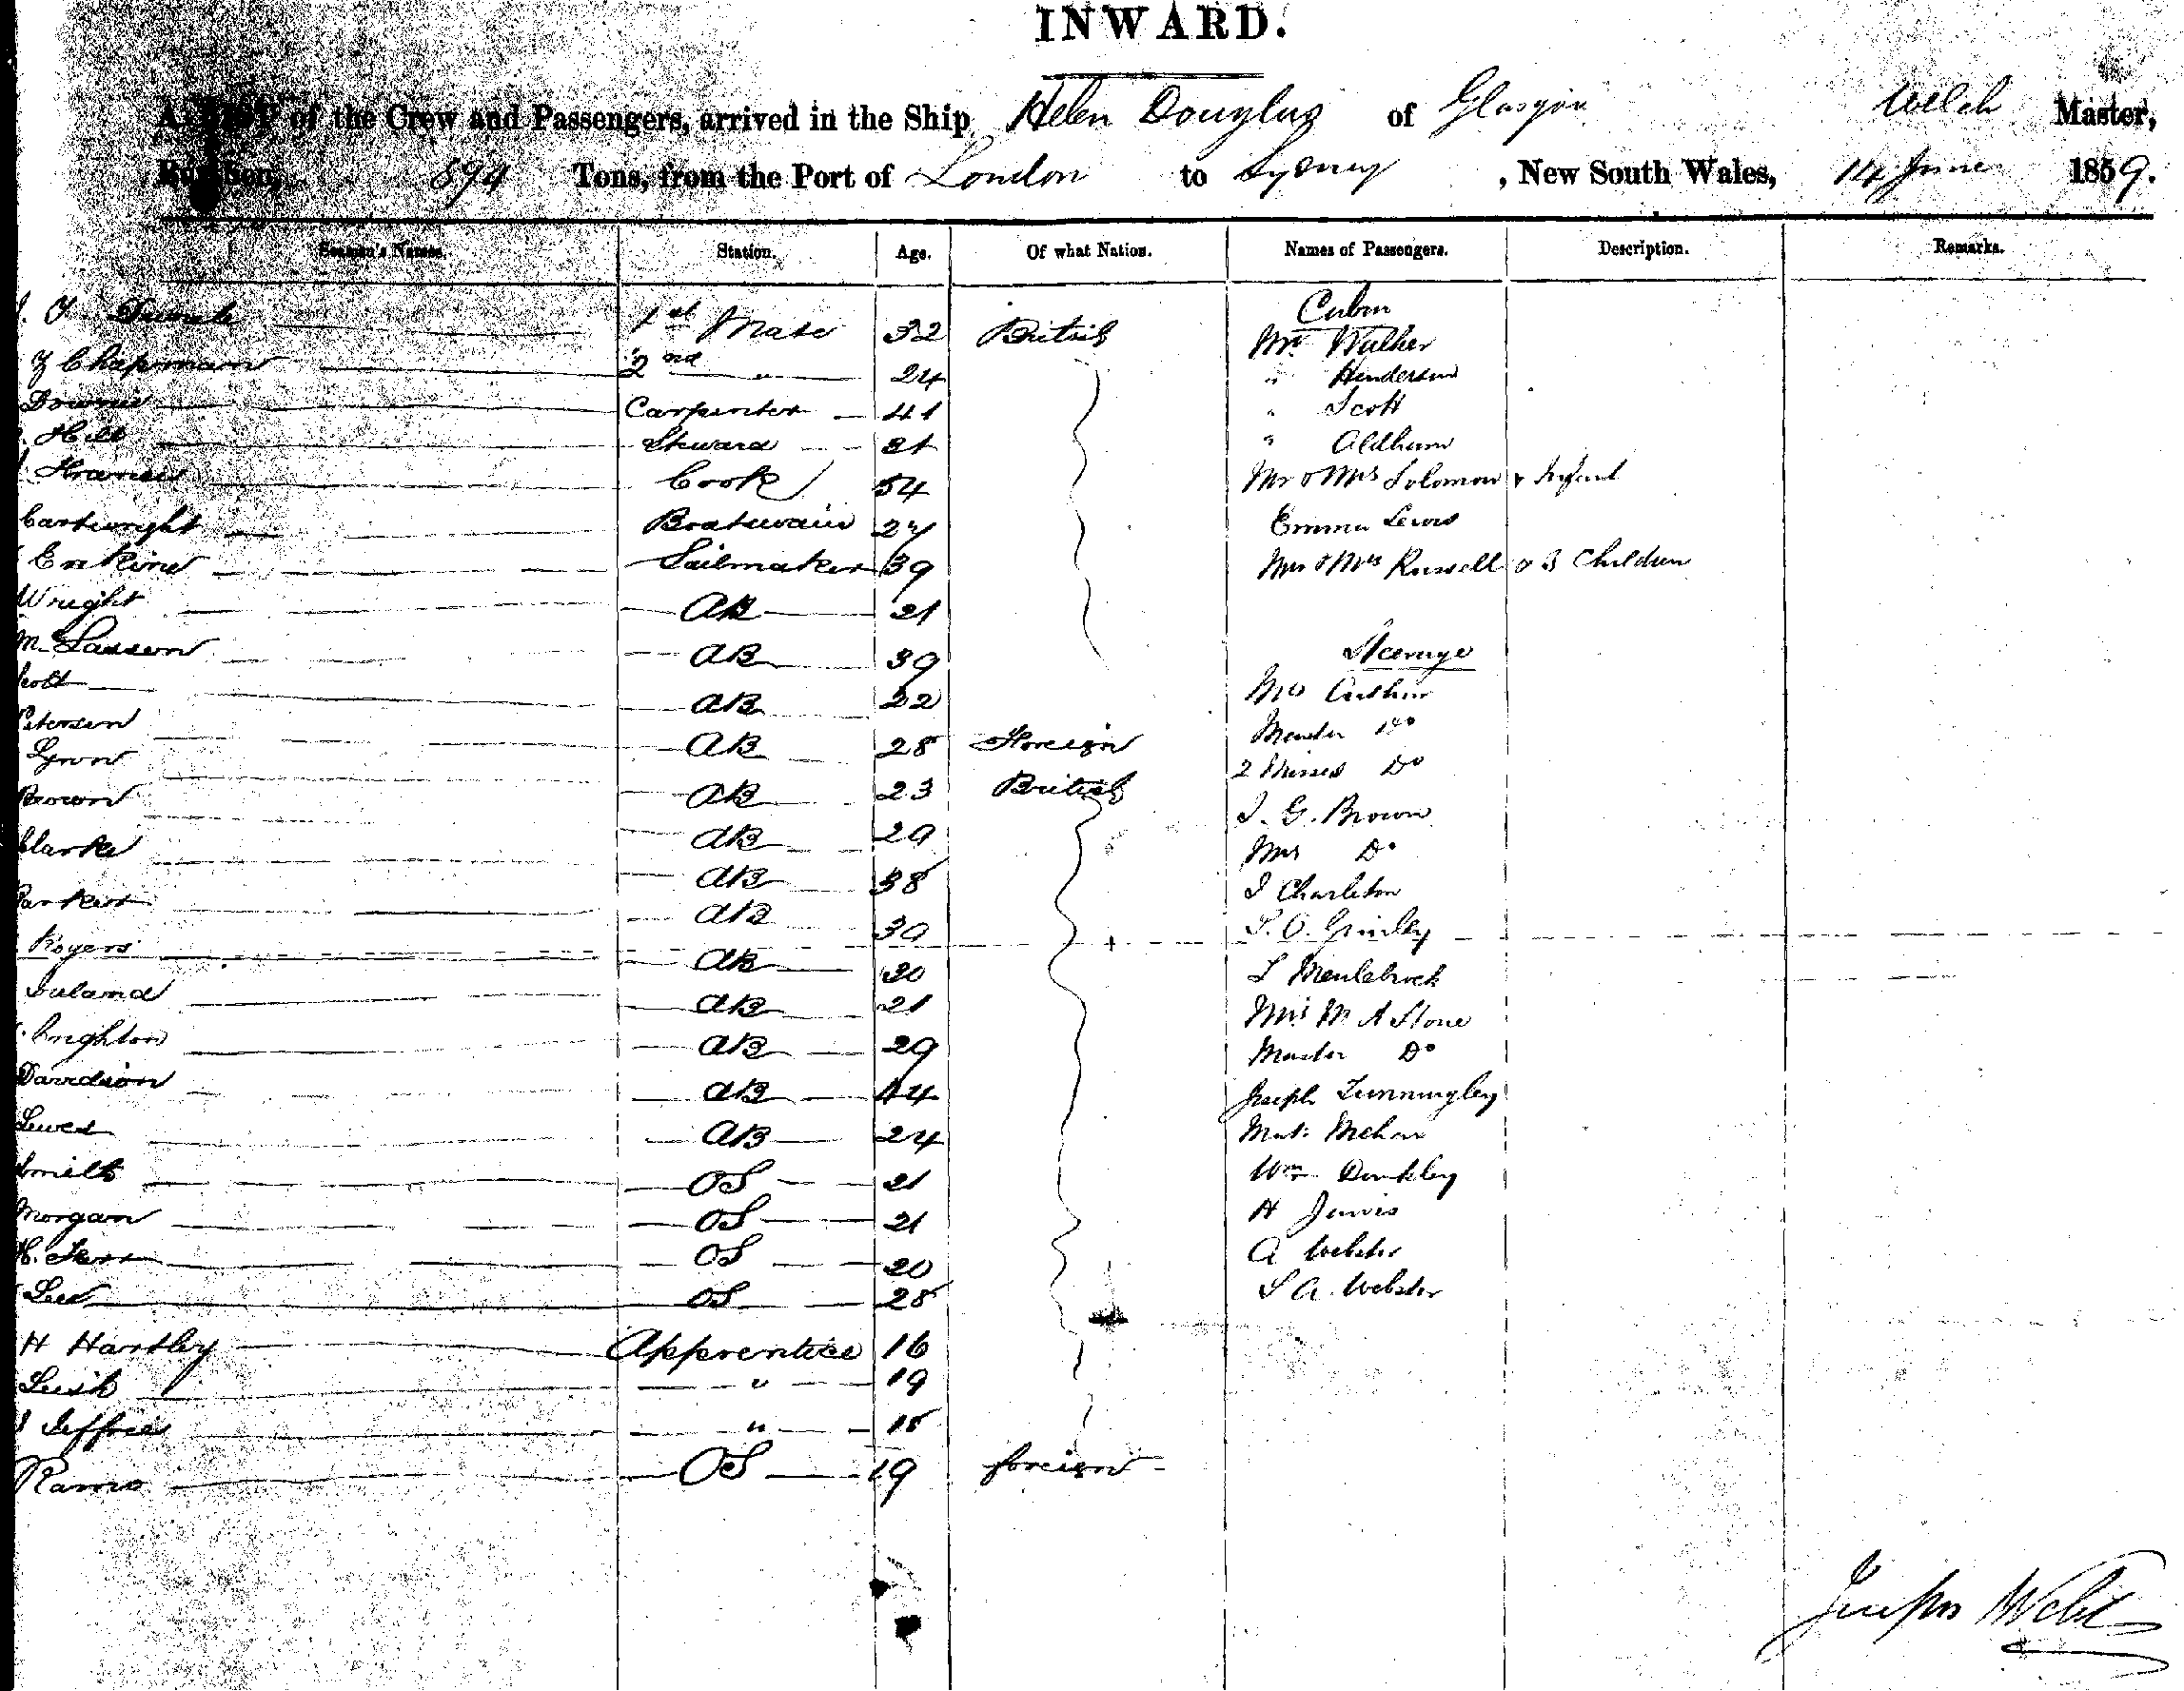 INWARD.
A LIST of the Crew and Passengers, arrived in the Ship Helen Douglas of Glasgow Welch Master,
Burthen, 594 Tons, from the Port of London to Sydney, New South Wales, 14 June 1859.
Seamen's Names. Station. Age. Of what Nation. Names of Passengers. Description. Remarks.
1st Mate 32 British Cabin
Mr Walker
Chapman 2nd " 24 " Henderson
Downie Carpenter 41 " Scott
Hill Steward 21 " Aldham
Francis Cook 54 Mr & Mrs Solomon & Infant
Cartwright Boatswain 27 Emma Lewis
Erskine Sailmaker 39 Mr & Mrs Russell & 3 Children
Wright AB 21
Lassen AB 39 Steerage
Scott AB 22 Mrs Arthur
Petersen AB 28 Foreign Master Do
Lynn AB 23 British 2 Misses Do
Brown AB 29 J. G. Brown
Clarke AB 38 Mrs Do
Parker AB 39 J Charleton
Rogers AB 20 T. O. Grindley
AB 21 L Meulebrock
Crighton AB 29 Mrs M A Stone
Davidson AB 44 Master Do
Lewes AB 24 Joseph Tunningley
Smith OS 21 Mehan
Morgan OS 21 Wm Dunkley
H. Kerr OS 20 H Jarvis
Lee OS 28 A Webster
S A. Webster
H Hartley Apprentice 16
Leish " 19
Jeffries " 18
Ramo OS 19 foreign